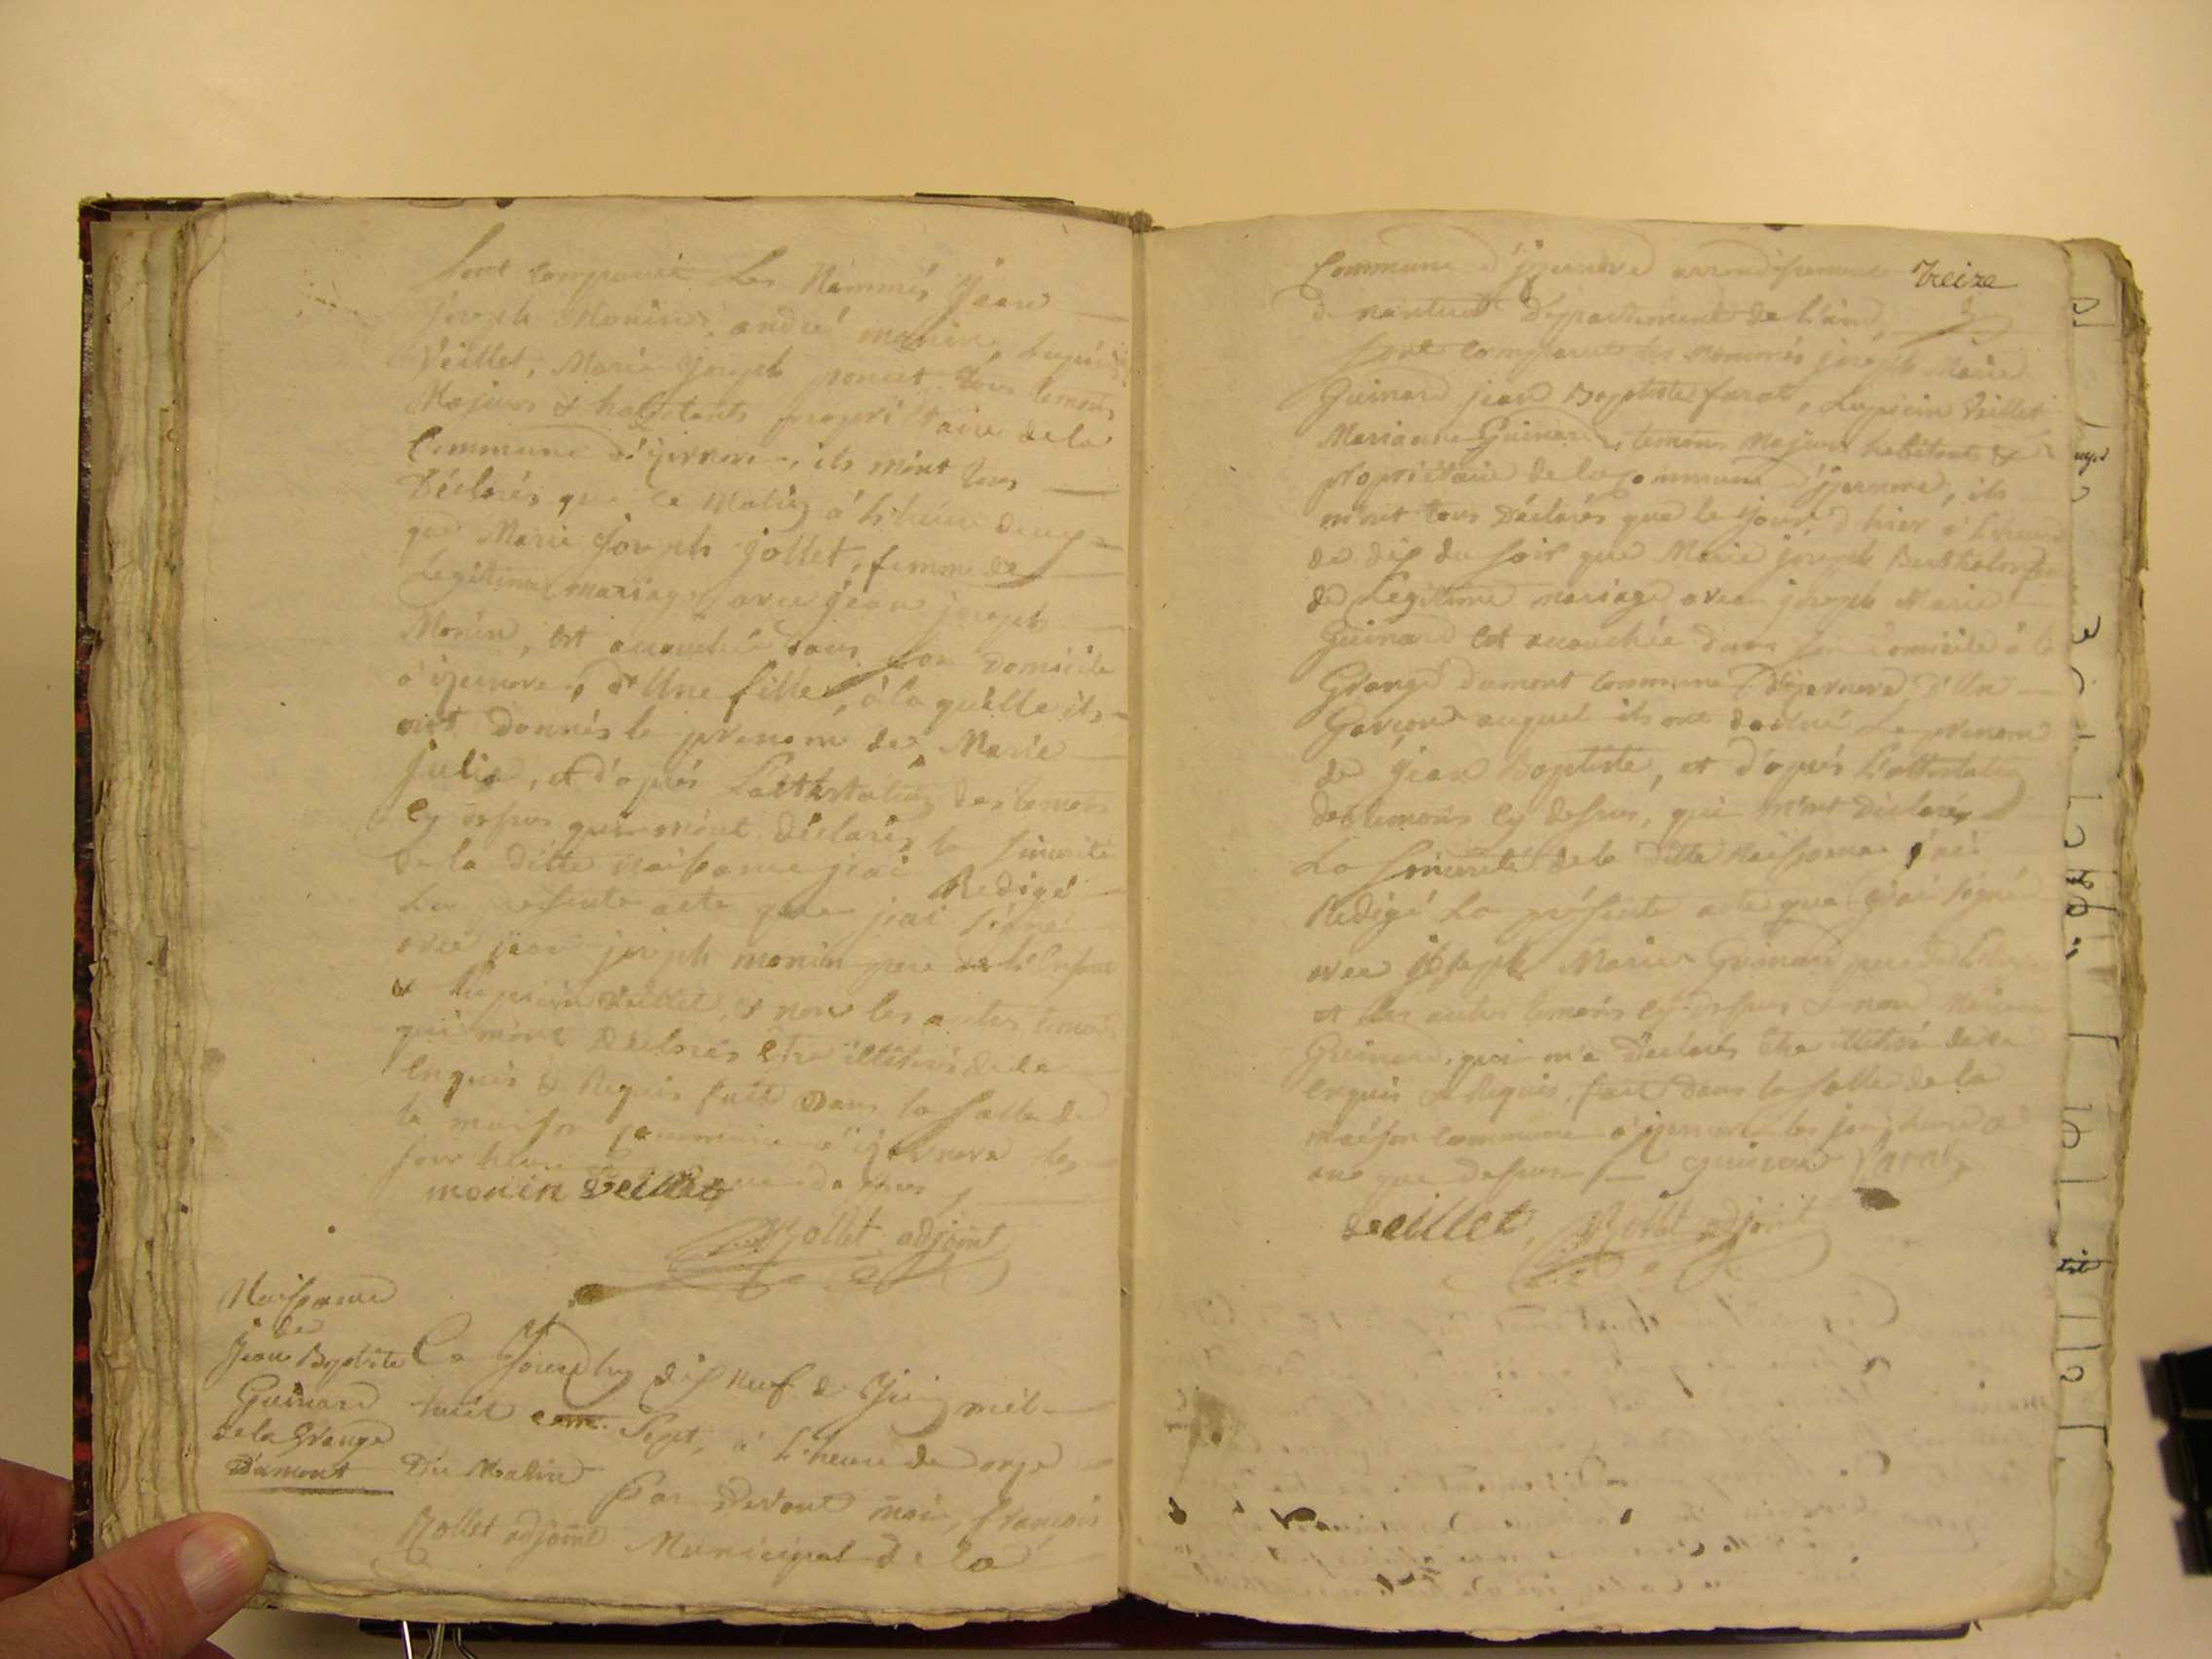 Sont comparuit Les Nommés Jean
Joseph Monin, andré monin, Lupicin
Veillet, Marie Joseph poncet tous temoins
Majeurs & habitants propriétaire de la
Commune d'izernore, ils m'ont tous
Déclarés que ce Matin à L'heure deux
que Marie Joseph jollet, femme de
Legitime mariage avec jean joseph
Monin, est accouchée dans son Domicile
à izernore, d'Une fille, à la quelle ils
ont Donnés le prenom de Marie
Julie, et d'après L'attestation des temoins
Cy dessus qui m'ont déclarés la sincerité
de la ditte naissance j'ai Redigé
La presente acte que jai signé
avec jean joseph monin pere de L'enfant
& Lupicin Veillet, & non les autres temoins
qui m'ont Déclarés Etre illitérés de ce
Enquis & Requis fait Dans la Salle de
la maison commune d'izernore les
jour heure que dessus
monin Veillet
Rollet adjoint
Naissance
de
Jean Baptiste
Guinard
de la Grange
D'amont
Ce Jourdhuy dix neuf de Juin mil
huit cent Sept, à L'heure de onze
Du Matin
Par Devant moi, françois
Rollet adjoint Municipal de la
Treize
Commune d'izernore arrondissement
De nantua Département de L'ain,
sont comparuit les nommés joseph Marie
Guinard jean Baptiste farat, Lupicin Veillet
Marianne Guinard, temoins Majeurs habitants &
propriétaire de la commune d'izernore, ils
m'ont tous Déclarés que le jour d'hier à L'heure
de dix du soir que Marie joseph
de Legitime mariage avec joseph Marie
Guinard est accouchée dans son domicile à la
Grange Damont commune D'izernore, d'Un
Garçon auquel ils ont donné Le prenom
de jean Baptiste, et d'après L'attestation
des temoins Cy dessus, qui m'ont Déclarés
La sincerité de la ditte Naissance j'ai
Redigé La présente acte que j'ai signé
avec joseph Marie Guinard pere de
et les autres temoins cy-dessus & non
Guinard, qui m'a Déclarés Etre illitéré de ce
enquis & Requis, fait dans la Salle de la
maison commune d'izernore les jour heure &
ans que dessus Guinard farat
Veillet, Rollet adjoint